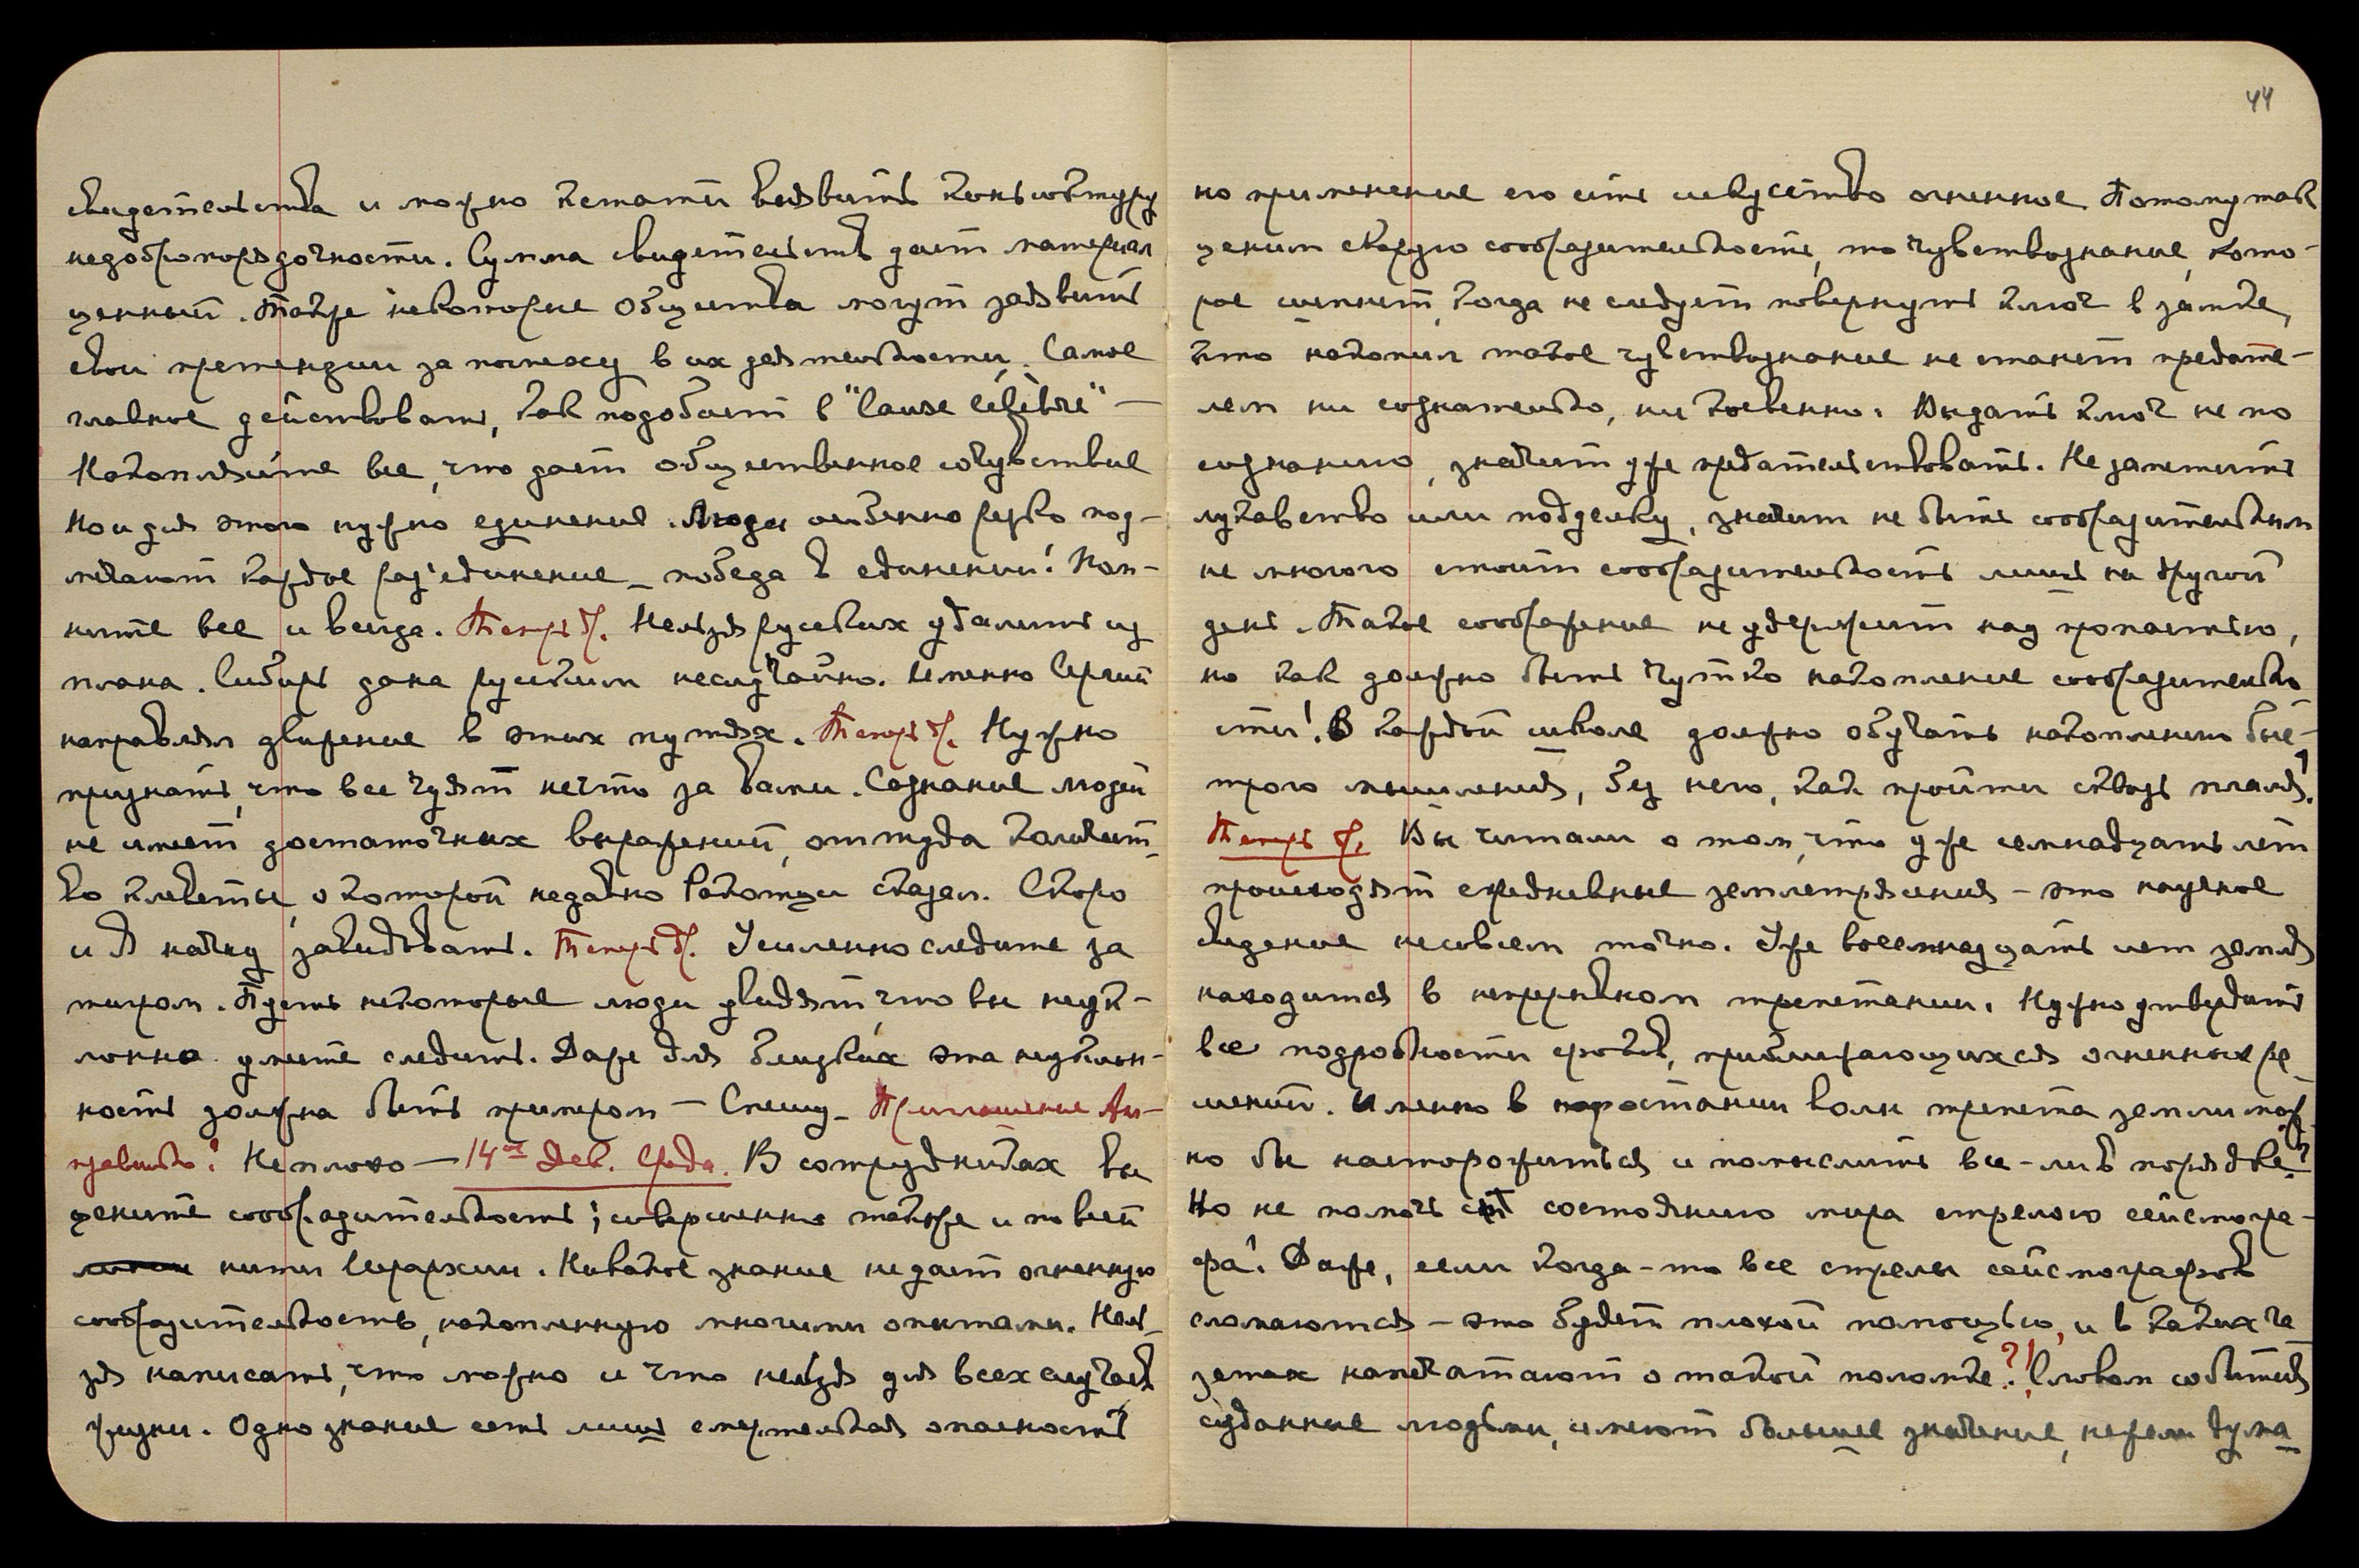 44
свидетельства и можно кстати выявить
недобропорядочности. Сумма свидетельств дает материал
ценный. Также некоторые Общества могут заявить
свои претензии за помеху в их деятельности. Самое
главное действовать, как подобает в "Cause Célèbre" —
Накопляйте все, что дает общественное сочувствие
Но и для этого нужно единение. Люди особенно резко под-
мечают каждое раз'единение — победа в единении! Пом-
ните все и всегда. Теперь др. Нельзя русских удалить из
плана. Сибирь дана русским неслучайно. Именно Сергий
направлял движение в этих путях. Теперь др. Нужно
признать, что все чуят нечто за вами. Сознание людей
не имеет достаточных выражений, оттуда количест-
во клеветы, о которой недавно Ракотци сказал. Скоро
и Я начну завидовать. Теперь др. Усиленно следите за
миром. Пусть некоторые люди увидят, что вы неук-
лонно умеете следить. Даже для близких эта неуклон-
ность должна быть примером — Спешу — Приглашение Ам-
правильно! Неплохо — 14ое Дек. Среда. В сотрудниках вы
цените сообразительность; совершенно также и по всей
нити Иерархии. Никакое знание не дает огненную
сообразительность, накопленную многими опытами. Нель-
зя написать, что можно и что нельзя для всех случаев
жизни. Одно знание есть лишь смертельная опасность
но применение его есть искусство огненное. Потому так
ценим скорую сообразительность, то чувствознание, кото-
рое шепнет, когда не следует повернуть ключ в замке,
кто накопил такое чувствознание не станет предате-
лем ни сознательно, ни косвенно. Выдать ключ не по
сознанию, значит уже предательствовать. Не заметить
лукавство или подделку, значит не быть сообразительным
не многого стоит сообразительность лишь на другой
день. Такое соображение не удержит над пропастью,
но как должно быть чутко накопление сообразительно
сти! В каждой школе должно обучать накоплению быс-
трого мышления, без него, как пройти сквозь пламя!
Теперь др. Вы читали о том, что уже семнадцать лет
происходят ежедневные землетрясения — это научное
сведение не совсем точно. Уже восемнадцать лет земля
находится в непрерывном трепетании. Нужно утвердить
все подробности сроков, приближающихся огненных ре-
шений. Именно в нарастании волн трепета земли мож-
но бы насторожиться и помыслить все-ли в порядке?
Но не помочь состоянию мира стрелою сейсмогра-
фа! Даже, если когда-то все стрелы сейсмографов
сломаются — это будет плохой помощью, и в каких га-
зетах напечатают о такой поломке?! Словом события
созданные людьми, имеют большее значение, нежели дума